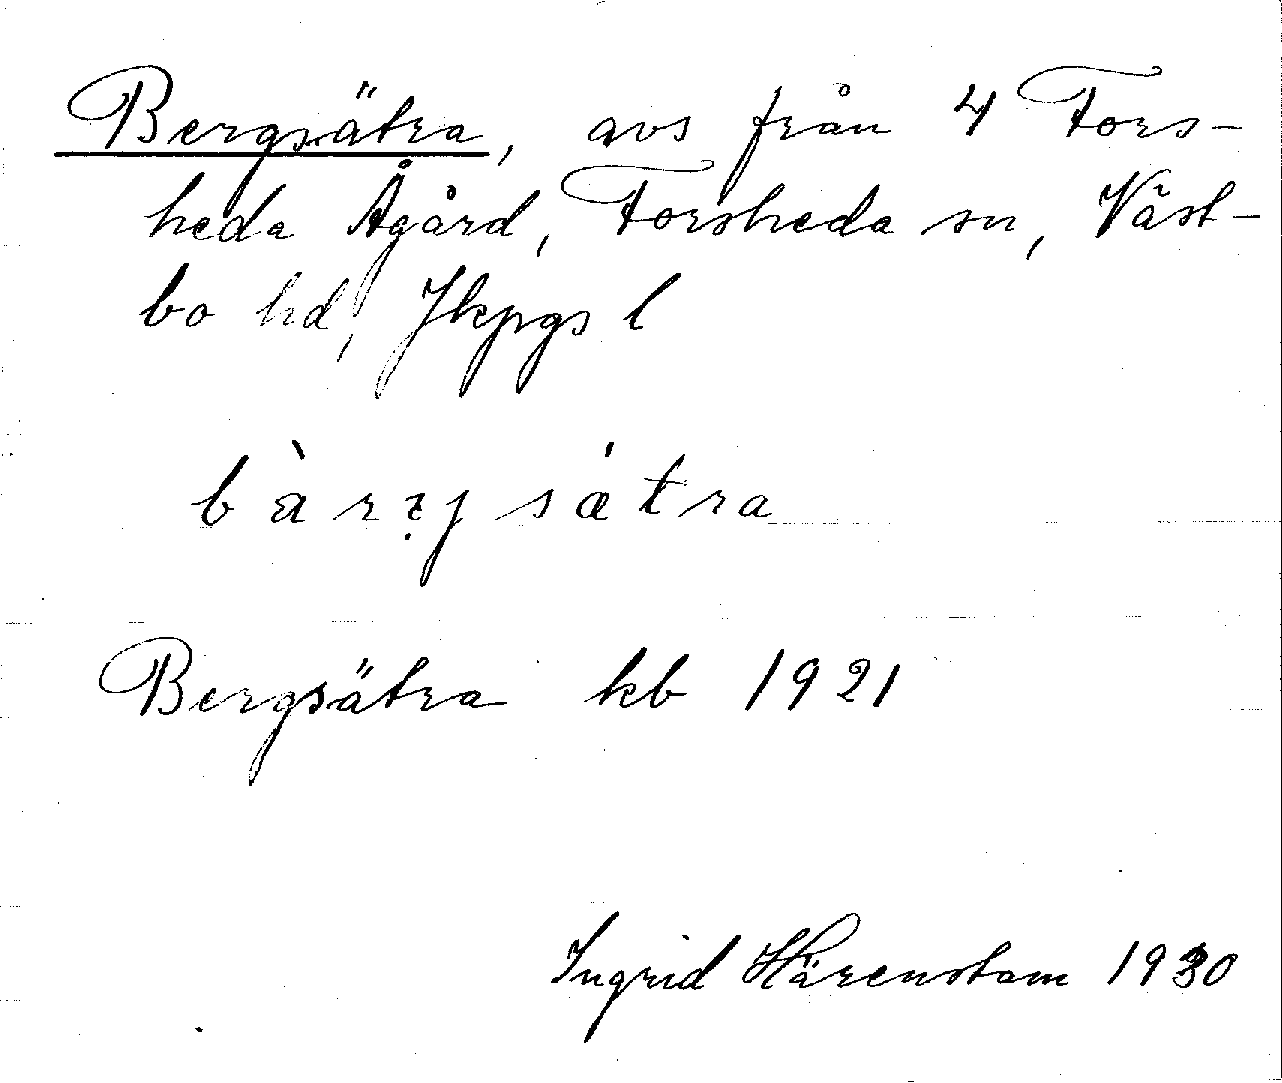 Bergsätra, avs från 4 Fors-
heda Ågård, Forsheda sn, Väst-
bo hd, Jkpgs l
Bergsätra kb 1921
Ingrid Härenstam 1930